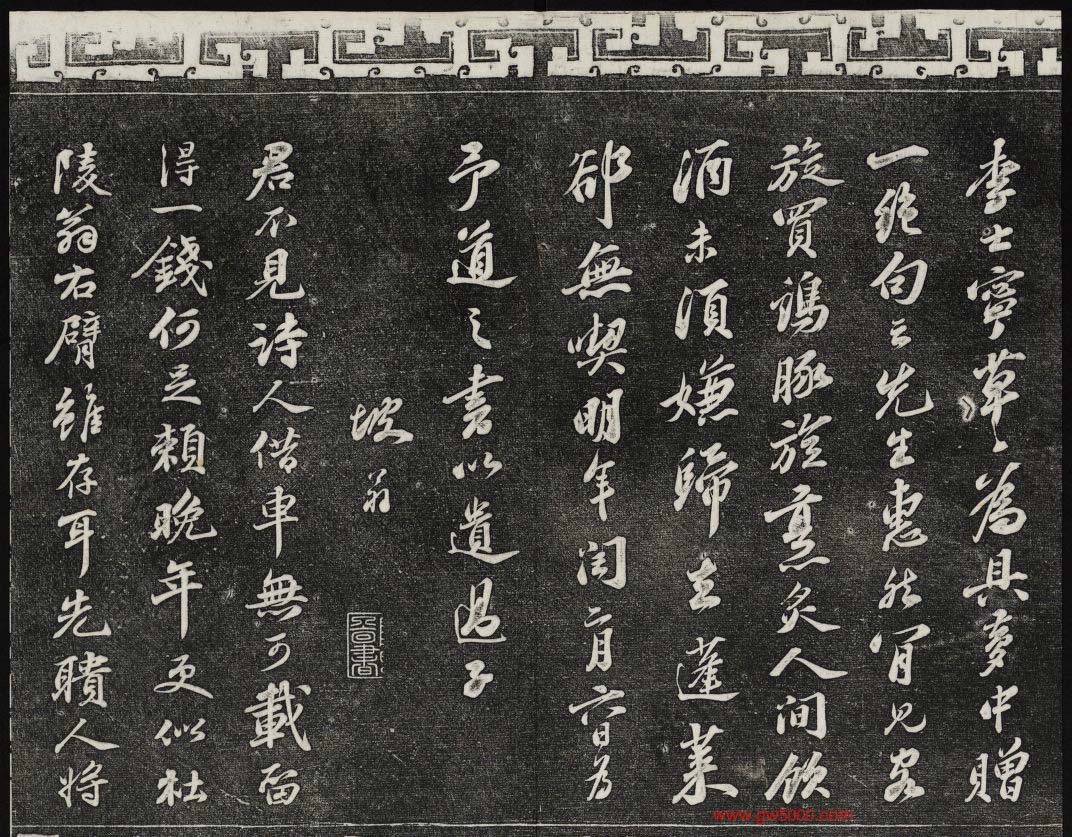 李士寧草草為具夢中贈
一絕句云先生惠然肯見客
旋買鷄豚旋烹炙人間飲
酒未須嫌歸去蓬萊
郤無喫明年閏二月六日為
予道之書以遺過子
坡翁
君不見詩人借車無可載留
得一錢何足賴晚年更似杜
陵翁右臂雖存耳先聵人將
www.gw5000.com